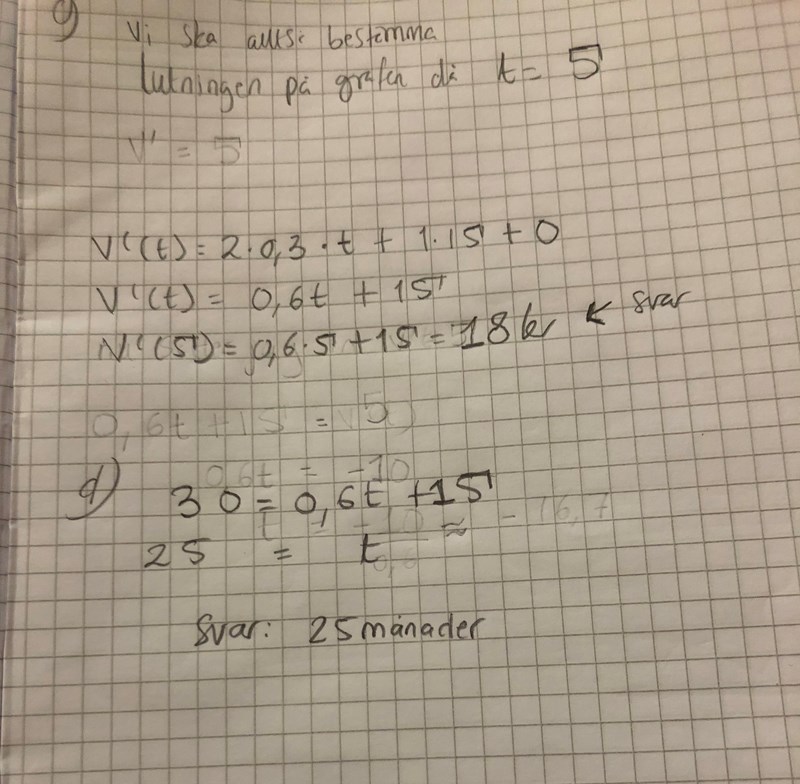 c) Vi ska alltså bestämma
lutningen på grafen då t = 5
V' = 5
V'(t) = 2·0,3·t + 1·15 + 0
V'(t) = 0,6t + 15
V'(5) = 0,6·5 + 15 = 18 kr ← svar
0,6t + 15 = 5
0,6t = -10
d) 30 = 0,6t + 15
≈ -16,7
25 = t
Svar: 25 månader